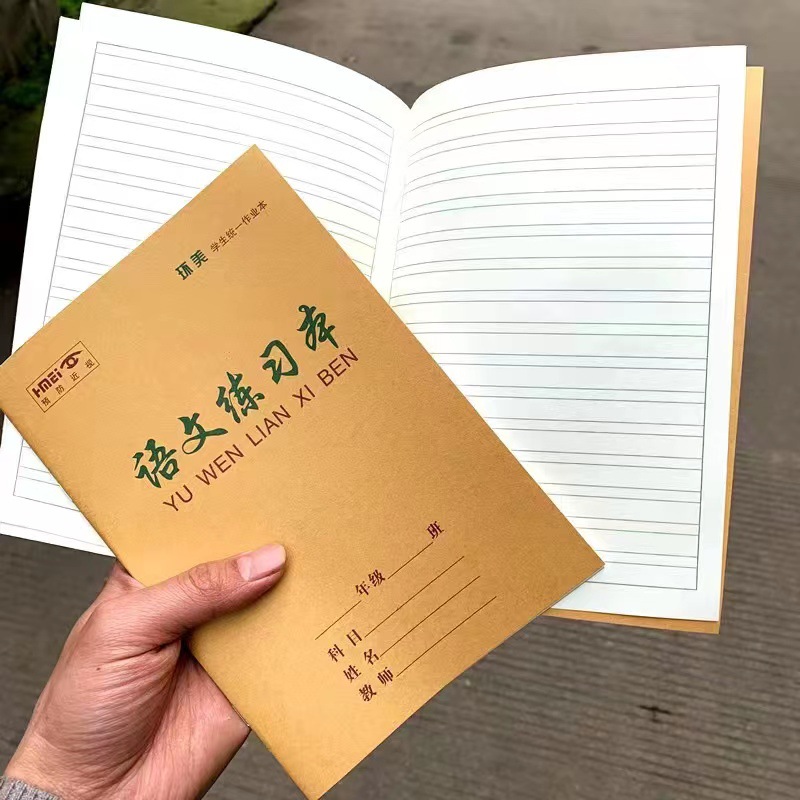 环美 学生统一作业本
HMEi
预防近视
语文练习本
YU WEN LIAN XI BEN
年级 班
科目
姓名
教师